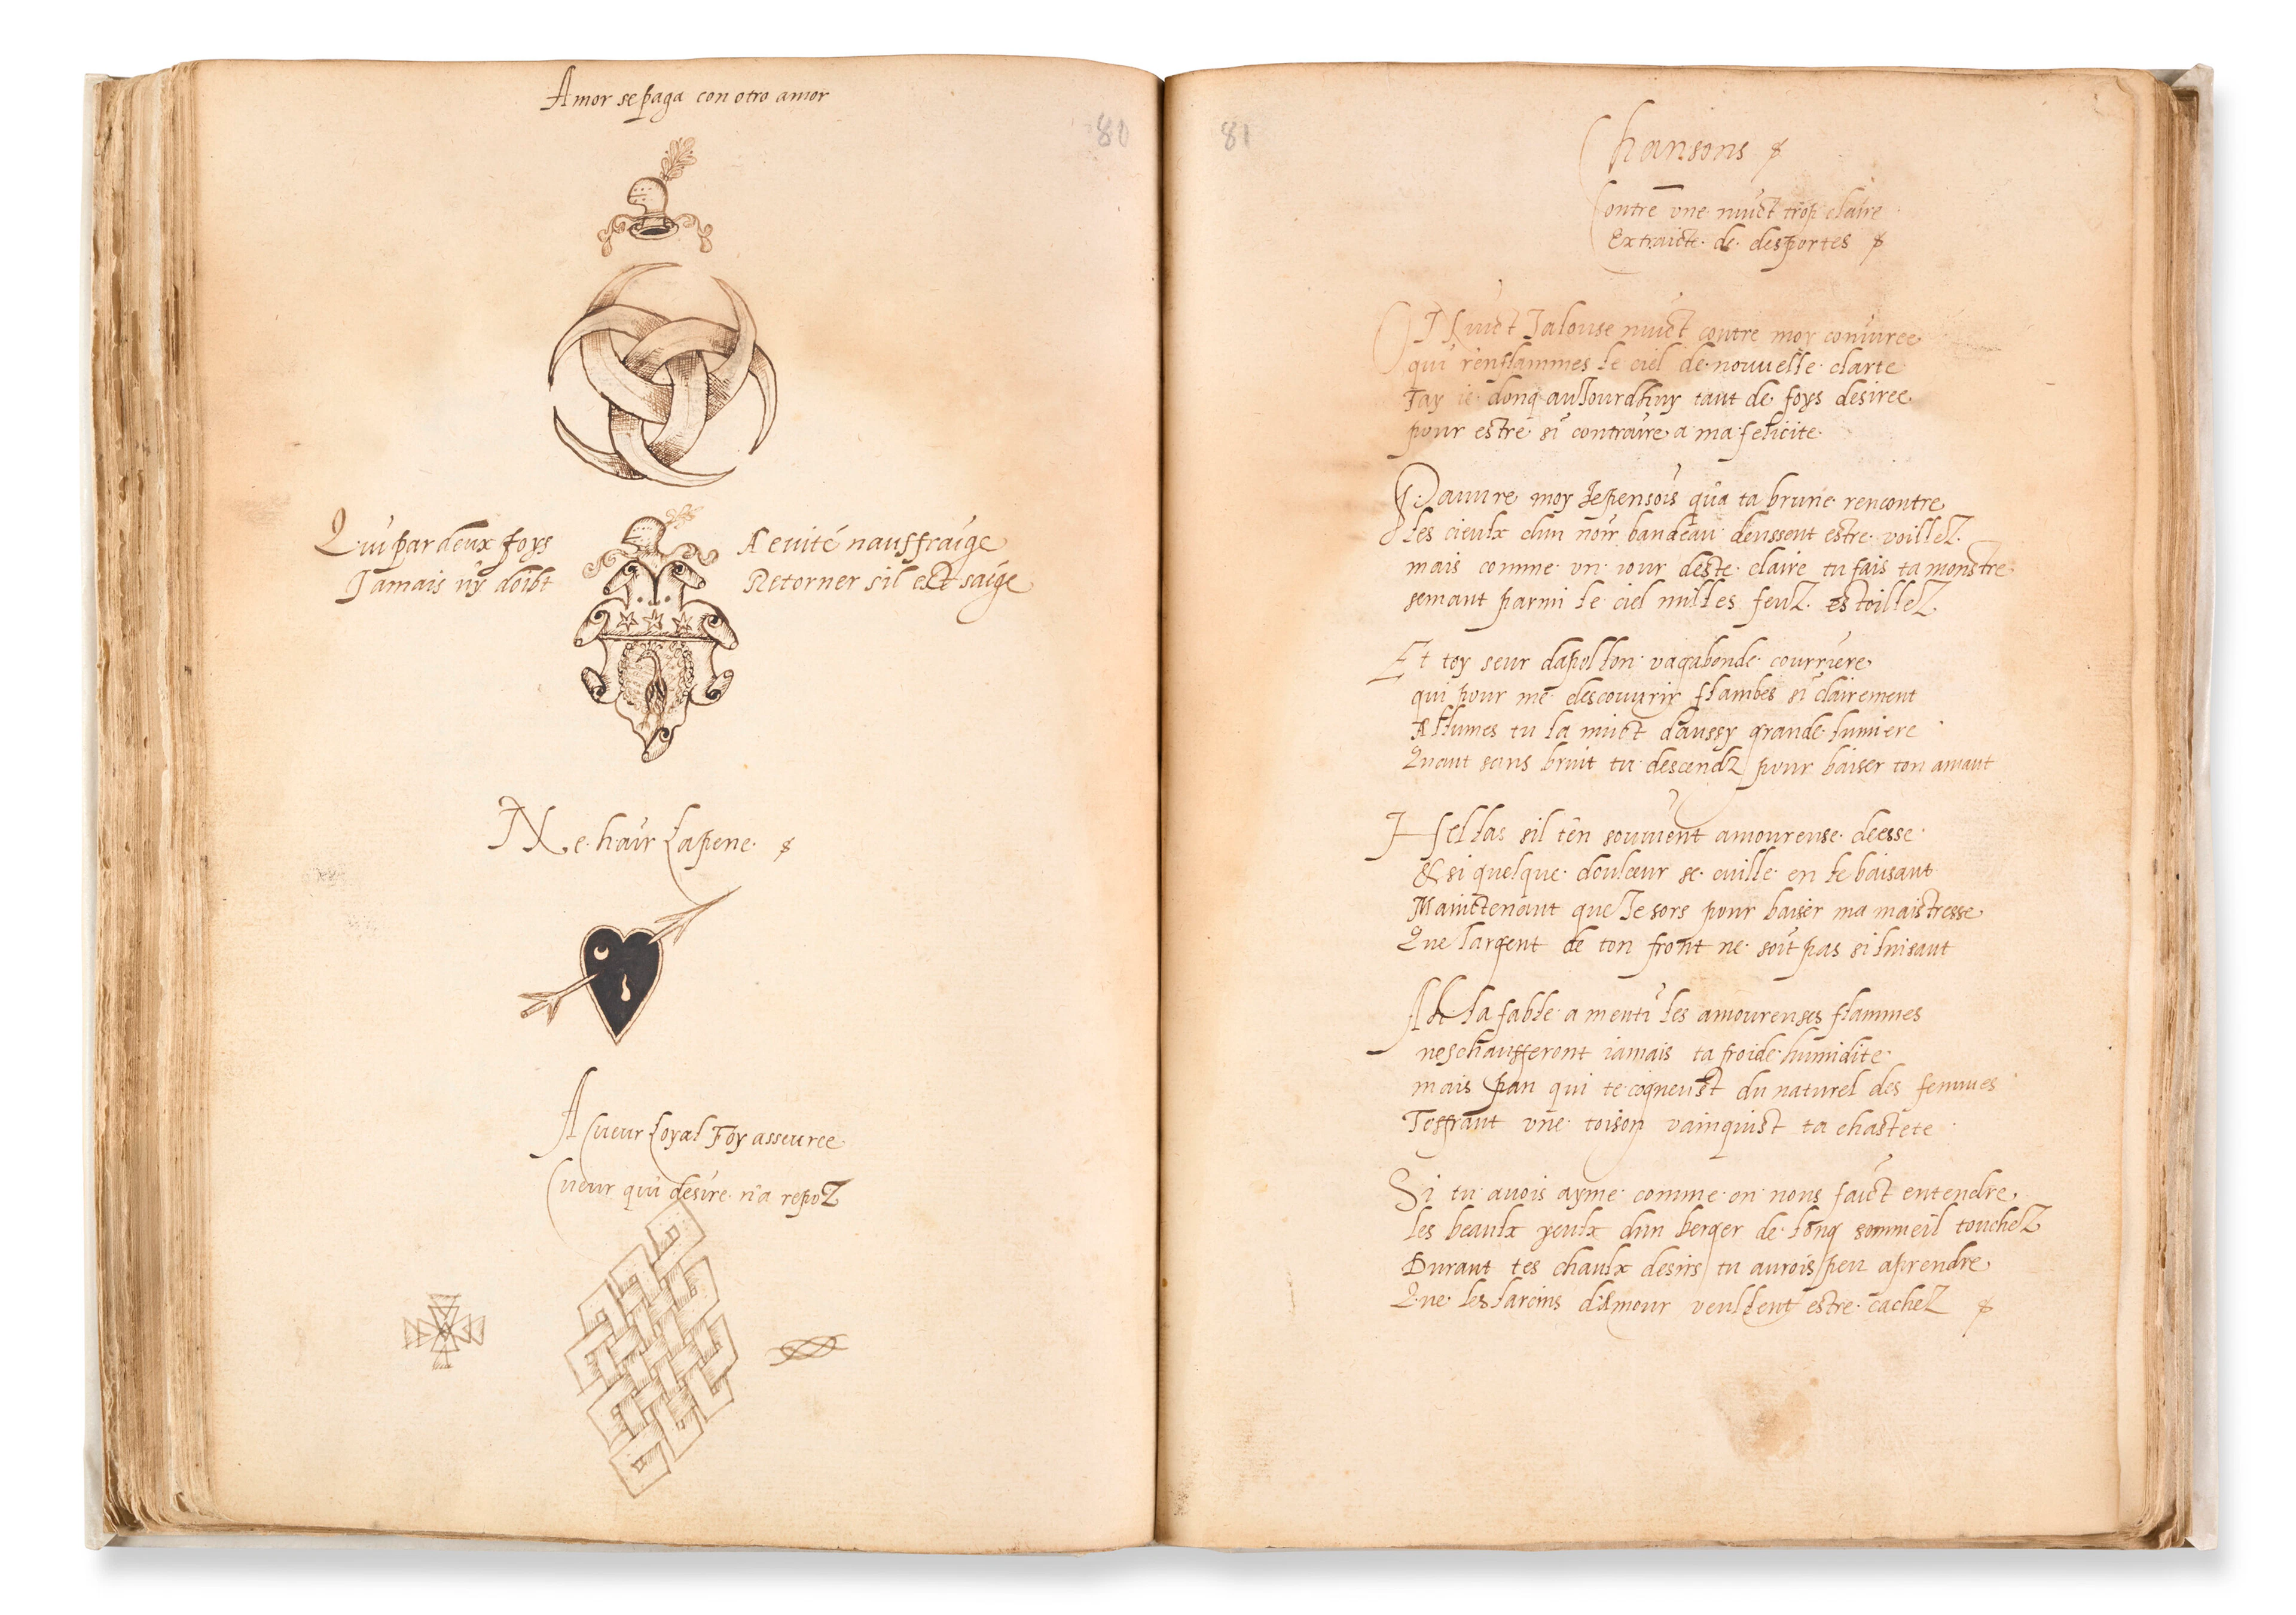 Amor se paga con otro amor
80
Qui par deux foys A euité nauffraige
Jamais ny doibt Retorner sil est saige
Ne hair Lapene
A Cueur Loyal Foy asseuree
Cueur qui desire n'a repoz
81
Chansons
Contre vne nuict trop claire
Extraicte de desportes
O Nuict Jalouse nuict contre moy coniuree
qui renflammes le ciel de nouuelle clarte
Tay ie donq auJourdhuy tant de foys desiree
pour estre si contraire a ma felicite
Pauure moy Je pensois qua ta brune rencontre
Les cieulx dun noir bandeau deussent estre voillez
mais comme vn iour deste claire tu fais ta monstre
semant parmi le ciel milles feuz estoillez
Et toy seur dapollon vagabonde courriere
qui pour me descouurir flambes si clairement
Allumes tu la nuict daussy grande lumiere
Quant sans bruit tu descendz pour baiser ton amant
Hellas sil ten souuient amoureuse deesse
& si quelque douleur se cuille en le baisant
Maintenant que Je sors pour baiser ma maistresse
Que largent de ton front ne soit pas si luisant
Ah la fable a menti les amoureuses flammes
neschaufferont iamais ta froide humidite
mais pan qui te cogneust du naturel des femmes
Tesfrant vne toison vainquist ta chastete
Si tu auois ayme comme on nous faict entendre
les beaulx yeulx dun berger de long sommeil touchez
Durant tes chaulx desirs tu aurois peu aprendre
Que les larcins d'amour veullent estre cachez